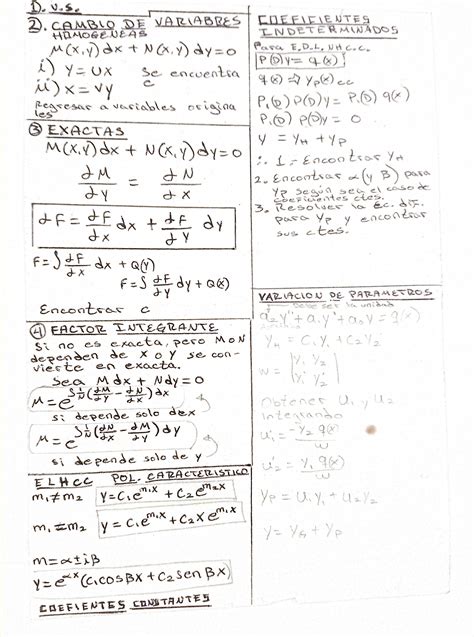 1. V.S.
2. CAMBIO DE VARIABRES
HOMOGENEAS
M(x,y)dx + N(x,y)dy=0
i) y=ux Se encuentra
ii) x=vy c
Regresar a variables origina
les
③ EXACTAS
M(x,y)dx + N(x,y)dy=0
dM/dy = dN/dx
dF = dF/dx dx + dF/dy dy
F=∫dF/dx dx + Q(y)
F=∫dF/dy dy + Q(x)
Encontrar c
④ FACTOR INTEGRANTE
Si no es exacta, pero M o N
dependen de x o y se con-
vierte en exacta.
Sea Mdx + Ndy=0
μ=e^∫1/N(dM/dy - dN/dx)dx
si depende solo de x
μ=e^∫1/N(dN/dx - dM/dy)dy
si depende solo de y
ELHCC POL. CARACTERISTICO
m₁≠m₂ y=C₁e^m₁x + C₂e^m₂x
m₁=m₂ y=C₁e^m₁x + C₂xe^m₁x
m=α±iβ
y=e^αx(C₁cosβx + C₂senβx)
COEFIENTES CONSTANTES
COEFICIENTES
INDETERMINADOS
Para E.D.L.NH c.c.
P(D)y= q(x)
q(x) ⇒ yp(x) cc
P₁(D)P(D)y= P₁(D)q(x)
P₁(D)P(D)y=0
y = yH + yp
∴ 1.- Encontrar yH
2. Encontrar α(y β) para
yp según sea el caso de
coeficientes ctes.
3. Resolver la Ec. dif.
para yp y encontrar
sus ctes.
VARIACION DE PARAMETROS
Debe ser la unidad
a₂y''+a₁y'+a₀y=q(x)
yH = C₁y₁ + C₂y₂
w = |y₁ y₂|
|y₁' y₂'|
Obtener u₁ y u₂
integrando
u₁'=-y₂ q(x)/w
u₂'= y₁ q(x)/w
yp = u₁y₁ + u₂y₂
y= yH + yp